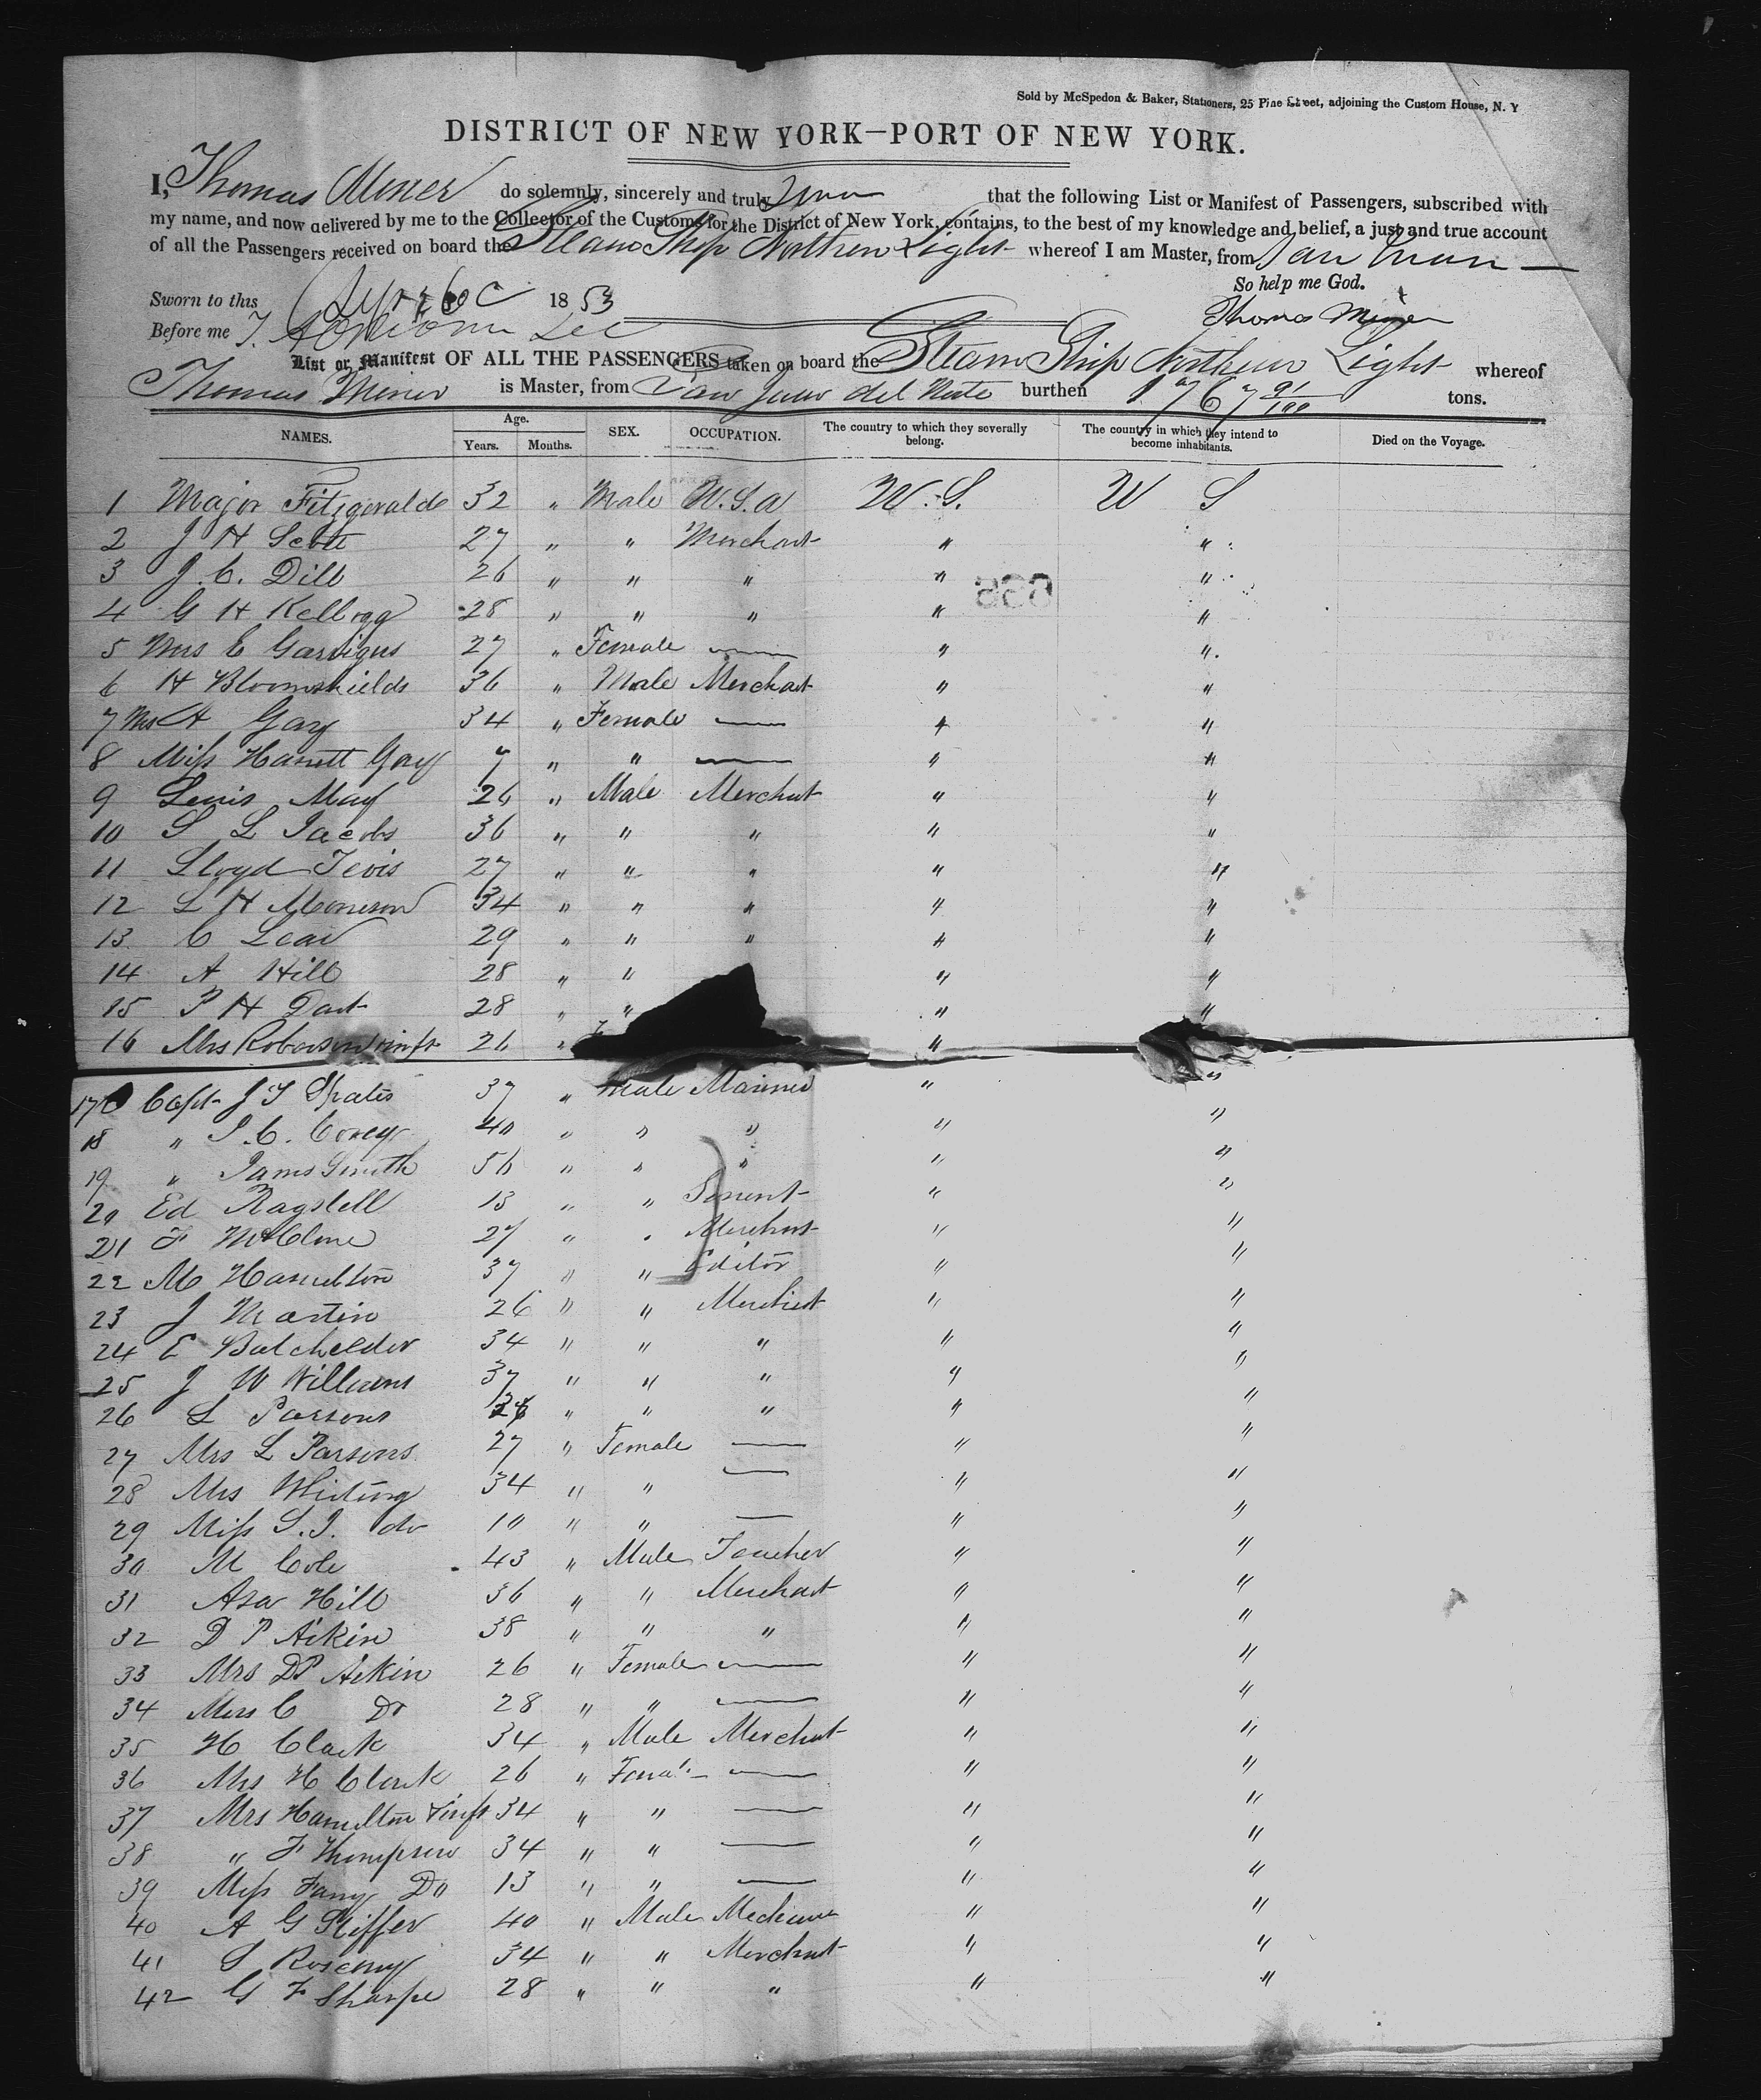 Sold by McSpedon & Baker, Stationers, 25 Pine Street, adjoining the Custom House, N. Y
DISTRICT OF NEW YORK—PORT OF NEW YORK.
I, Thomas Miner do solemnly, sincerely and truly that the following List or Manifest of Passengers, subscribed with
my name, and now delivered by me to the Collector of the Customs for the District of New York, contains, to the best of my knowledge and belief, a just and true account
of all the Passengers received on board the Steam Ship Northern Light whereof I am Master, from San Juan
So help me God.
Sworn to this 1853
Thomas Miner
Before me
List or Manifest OF ALL THE PASSENGERS taken on board the Steam Ship Northern Light whereof
Thomas Miner is Master, from San Juan del burthen 1767 91/100 tons.
NAMES. Age. Years. Months. SEX. OCCUPATION. The country to which they severally belong. The country in which they intend to become inhabitants. Died on the Voyage.
1 Major Fitzgerald 32 " Male U.S.A U.S. U S
2 J H Scott 27 " " Merchant " "
3 J. C. Dill 26 " " " " "
4 G H Kellogg 28 " " " " "
5 Mrs E Garrigus 27 " Female — " "
6 H Bloomshields 36 " Male Merchant " "
7 Mrs A Gay 34 " Female — " "
8 Miss Harrett Gay 7 " " — " "
9 Lewis May 26 " Male Merchant " "
10 S L Jacobs 36 " " " " "
11 Lloyd Tevis 27 " " " " "
12 L H 34 " " " " "
13 C 29 " " " " "
14 A Hill 28 " " " "
15 P H Dart 28 " " " "
16 Mrs & inft 26 " "
17 Capt J T 37 " Male Mariner " "
18 " J. C. 40 " " " " "
19 " James Smith 56 " " " " "
20 Ed Ragstell 13 " " " "
21 F McClure 27 " " Merchant " "
22 M Hamilton 37 " " Editor " "
23 J Martin 26 " " Merchant " "
24 E Batchelder 34 " " " " "
25 J W Williams 37 " " " " "
26 L Parsons " " " " "
27 Mrs L Parsons 27 " Female — " "
28 Mrs Whiting 34 " " — " "
29 Miss S. J. do 10 " " — " "
30 M Cole 43 " Male Teacher " "
31 Asa Hill 36 " " Merchant " "
32 D P Aikin 38 " " " " "
33 Mrs DP Aikin 26 " Female — " "
34 Miss C Do 28 " " — " "
35 H Clark 34 " Male Merchant " "
36 Mrs H Clark 26 " Female — " "
37 Mrs Hamilton & inft 34 " " — " "
38 " F Thompson 34 " " — " "
39 Miss Fanny Do 13 " " — " "
40 A G 40 " Male Mechanic " "
41 S 34 " " Merchant " "
42 G F Sharpe 28 " " " " "